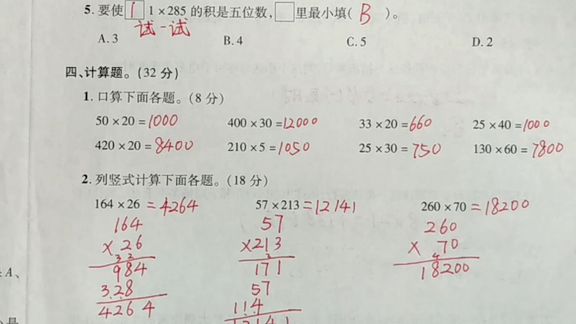 5.要使1 1×285的积是五位数,□里最小填( B )。
试一试
A.3 B.4 C.5 D.2
四、计算题。(32分)
1.口算下面各题。(8分)
50×20=1000 400×30=12000 33×20=660 25×40=1000
420×20=8400 210×5=1050 25×30=750 130×60=7800
2.列竖式计算下面各题。(18分)
164×26=4264 57×213=12141 260×70=18200
164 57 260
×26 ×213 ×70
984 171 18200
328 57
4264 114
12141
A、